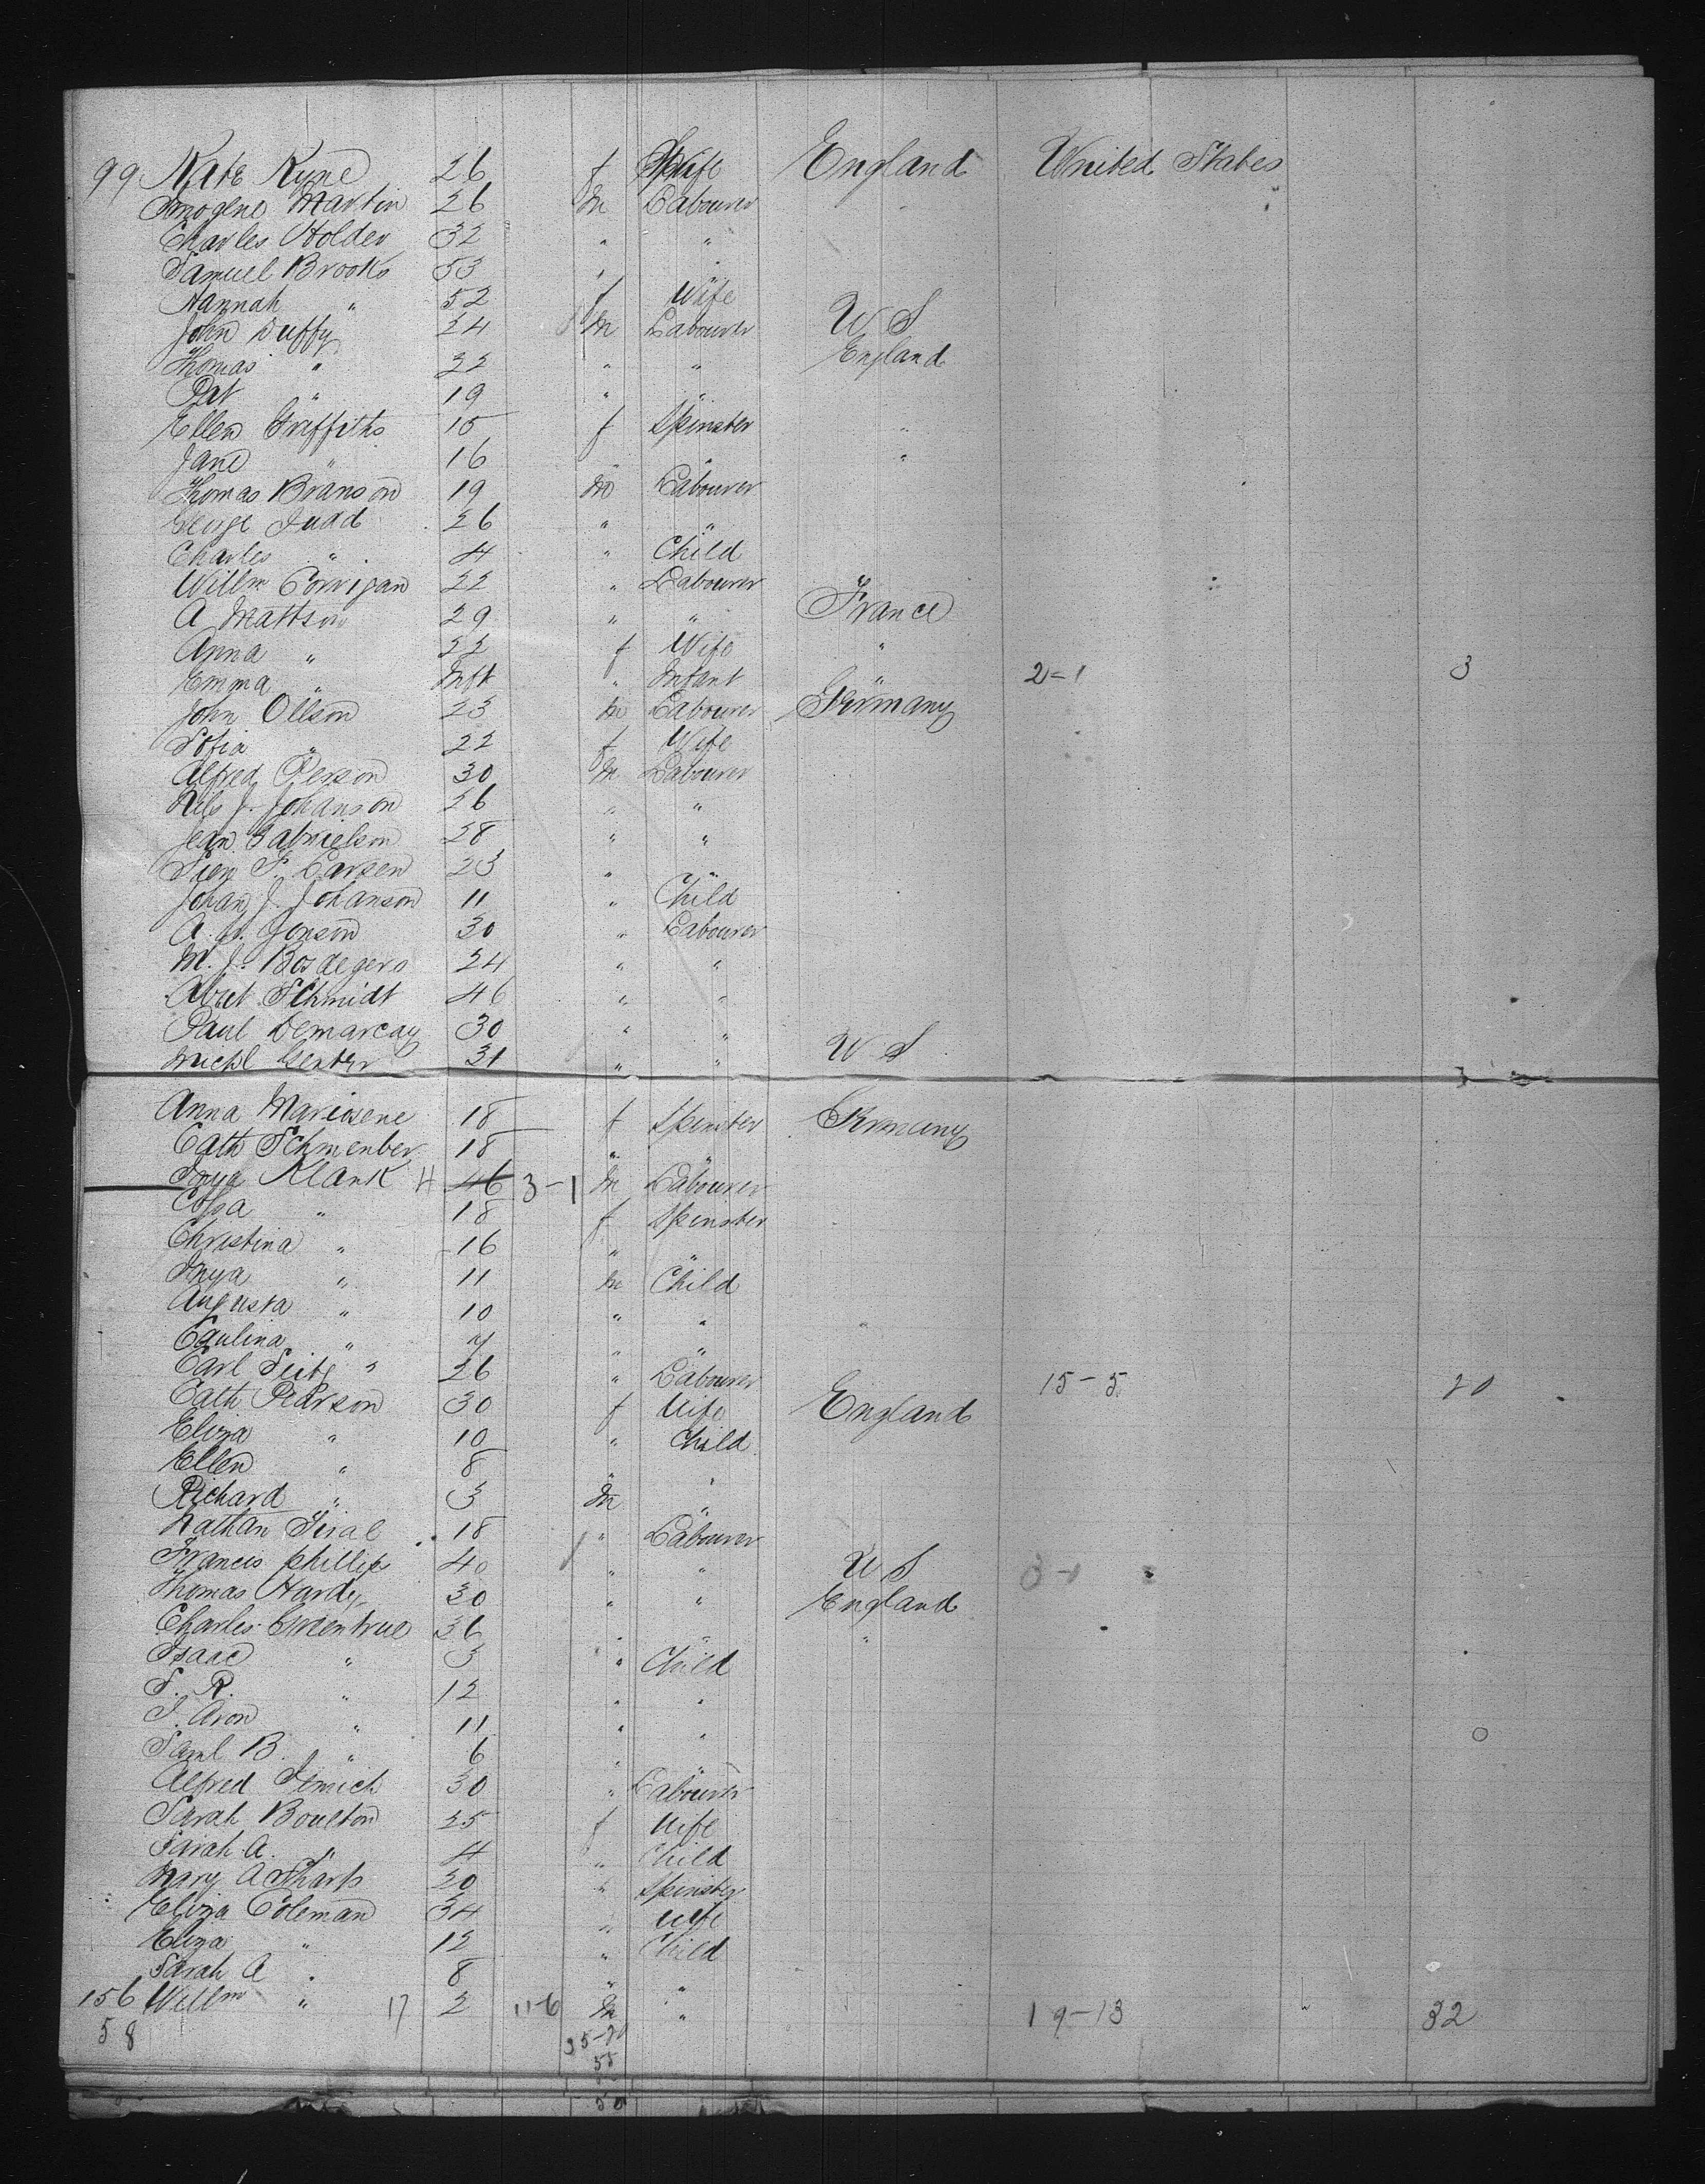 99 Kate Kyne 26 f Wife England United States
Imogene Martin 26 m Labourer
Charles Holder 32 " "
Samuel Brooks 53 " "
Hannah " 52 f Wife
John Duffy 24 m Labourer U S
Thomas " 22 " " England
Pat " 19 " "
Ellen Griffiths 15 f Spinster "
Jane " 16 " " "
Thomas Branson 19 m Labourer
George Judd 26 " "
Charles " 4 " Child
Willm Corrigan 22 " Labourer
A Mattson 29 " " France
Anna " 22 f Wife "
Emma " Inft " Infant " 2-1 3
John Ollson 23 m Labourer Germany
Sofia " 22 f Wife
Alfred Person 30 m Labourer
Nils J. Johanson 26 " "
Jean Gabrielson 28 " "
P. Carsen 23 " "
Johan J. Johanson 11 " Child
A. Jonson 30 " Labourer
M. J. Bosdegers 24 " "
Schmidt 46 " "
Paul Demarcay 30 " "
Michl 31 " " U S
Anna 18 f Spinster Germany
Cath Schmenber 18 " "
Inga Klank 4 46 3-1 m Labourer
" 18 f Spinster
Christina " 16 " "
Inga " 11 m Child
Augusta " 10 " "
Caulina " 7 " "
Carl Seitz " 26 " Labourer 15-5 20
Cath Pearson 30 f Wife England
Eliza " 10 " Child
Ellen " 8 " "
Richard " 3 m "
Nathan 18 " Labourer
Francis Phillips 40 " " U S 3-1
Thomas Hardy 30 " " England
Charles 36 " " "
Isaac " 3 " Child
S. R. " 12 " "
J. Aron " 11 " "
Saml B. " 6 " "
Alfred 30 " Labourer
Sarah Boulton 25 f Wife
Sarah A. " 4 " Child
Mary A Sharp 20 " Spinster
Eliza Coleman 34 " Wife
Eliza " 12 " Child
Sarah A " 8 " "
156 Willm " 17 2 11-6 m " 19-13 32
58 35-20
55